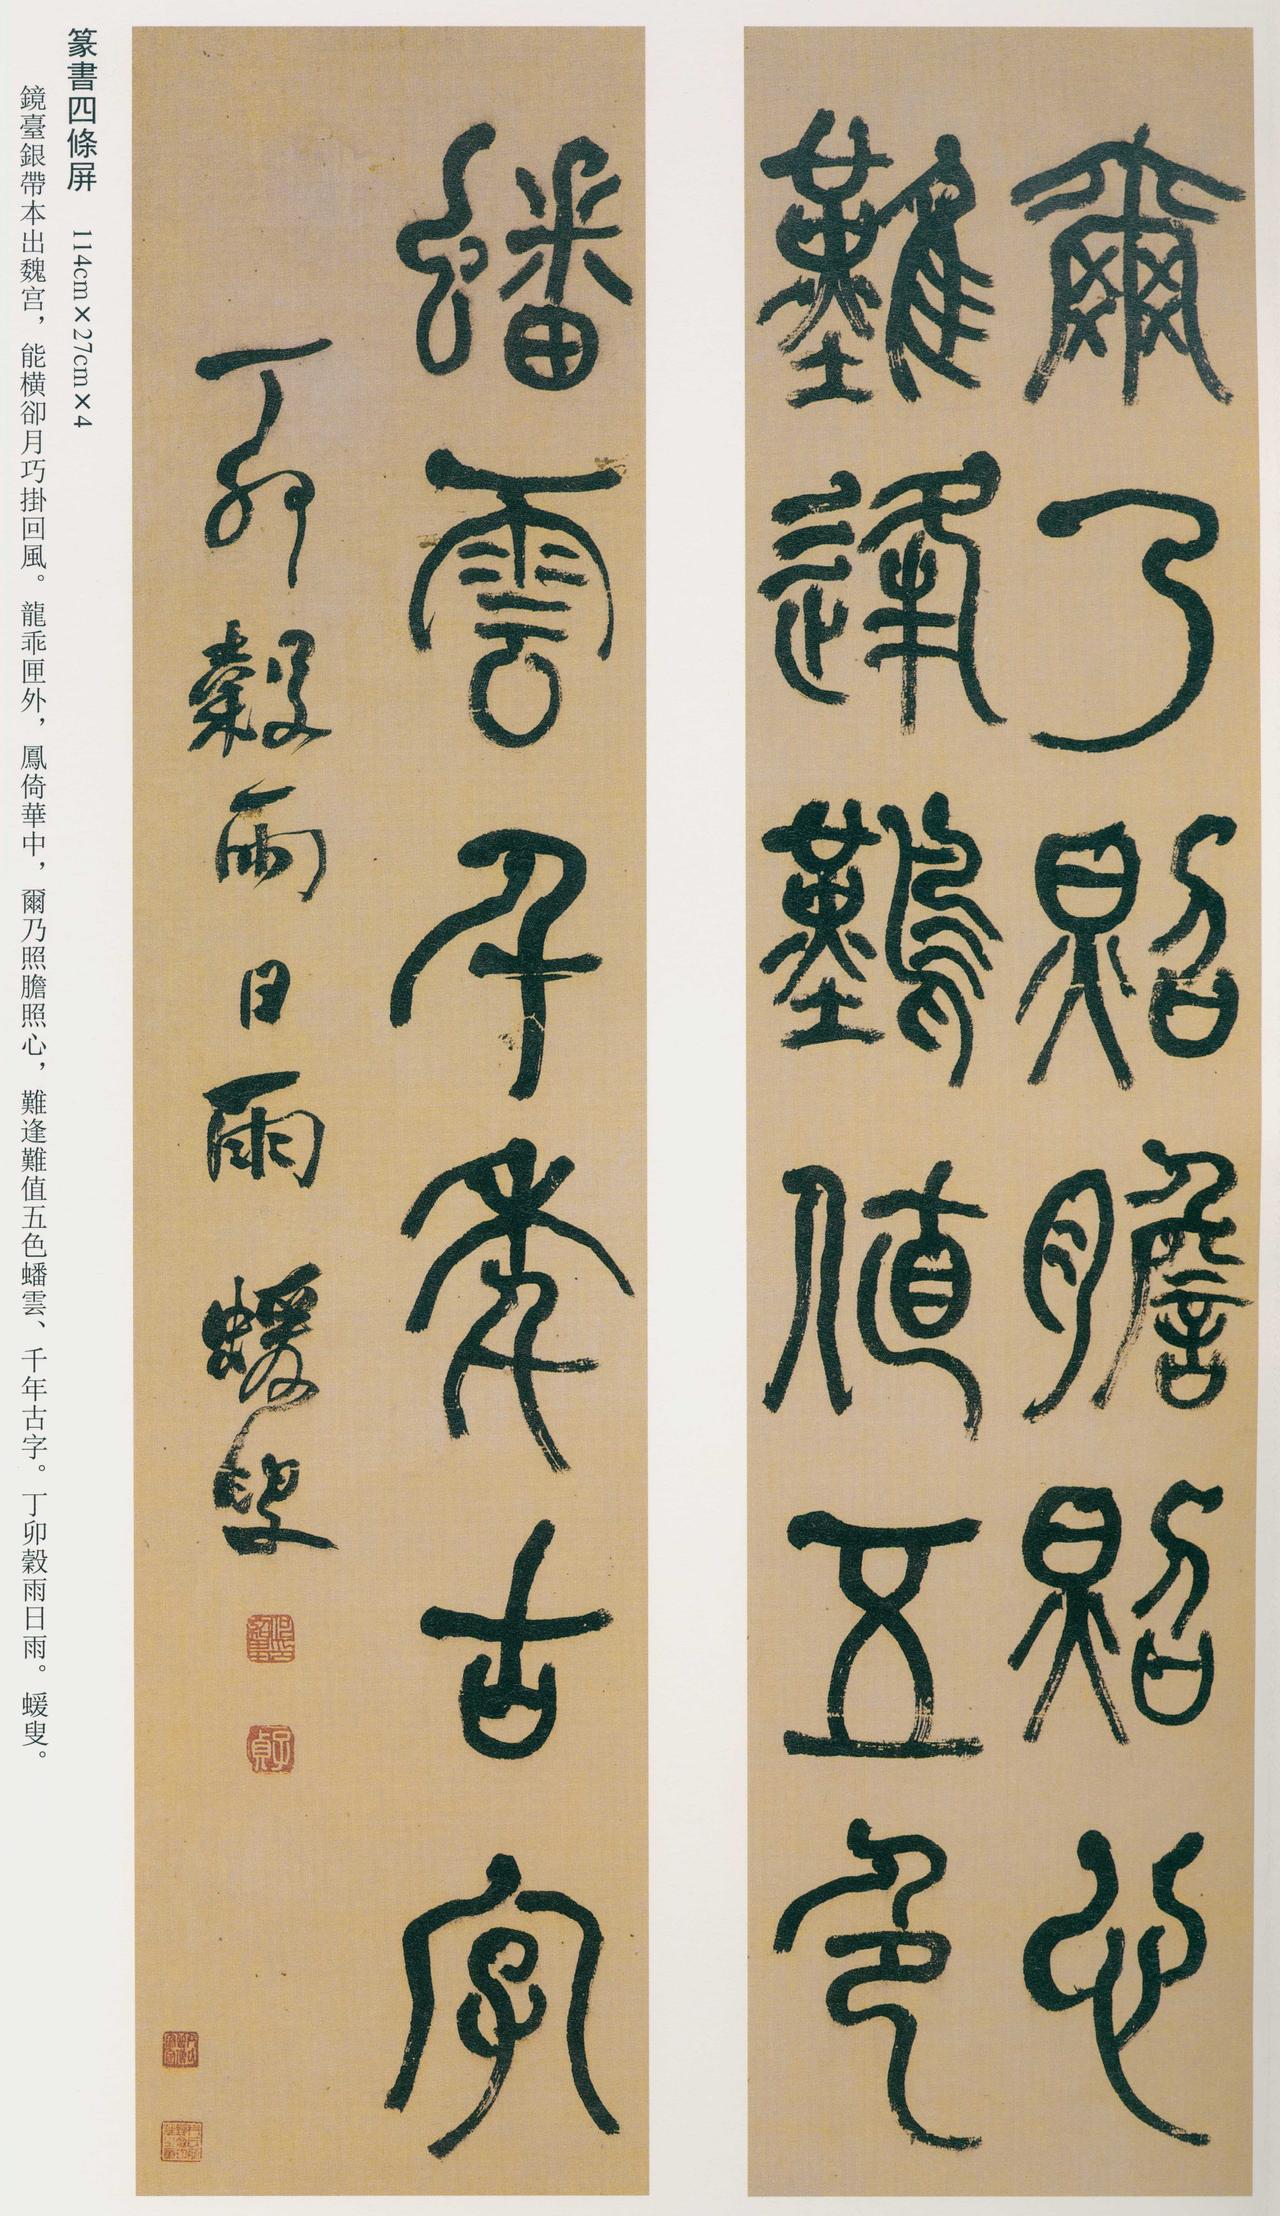 爾乃照膽照心
難逢難值五色
蟠雲千年古字
丁卯穀雨日雨蝯叟
子貞
篆書四條屏 114cm×27cm×4
鏡臺銀帶本出魏宫，能橫卻月巧掛回風。龍乖匣外，鳳倚華中，爾乃照膽照心，難逢難值五色蟠雲、千年古字。丁卯穀雨日雨。蝯叟。